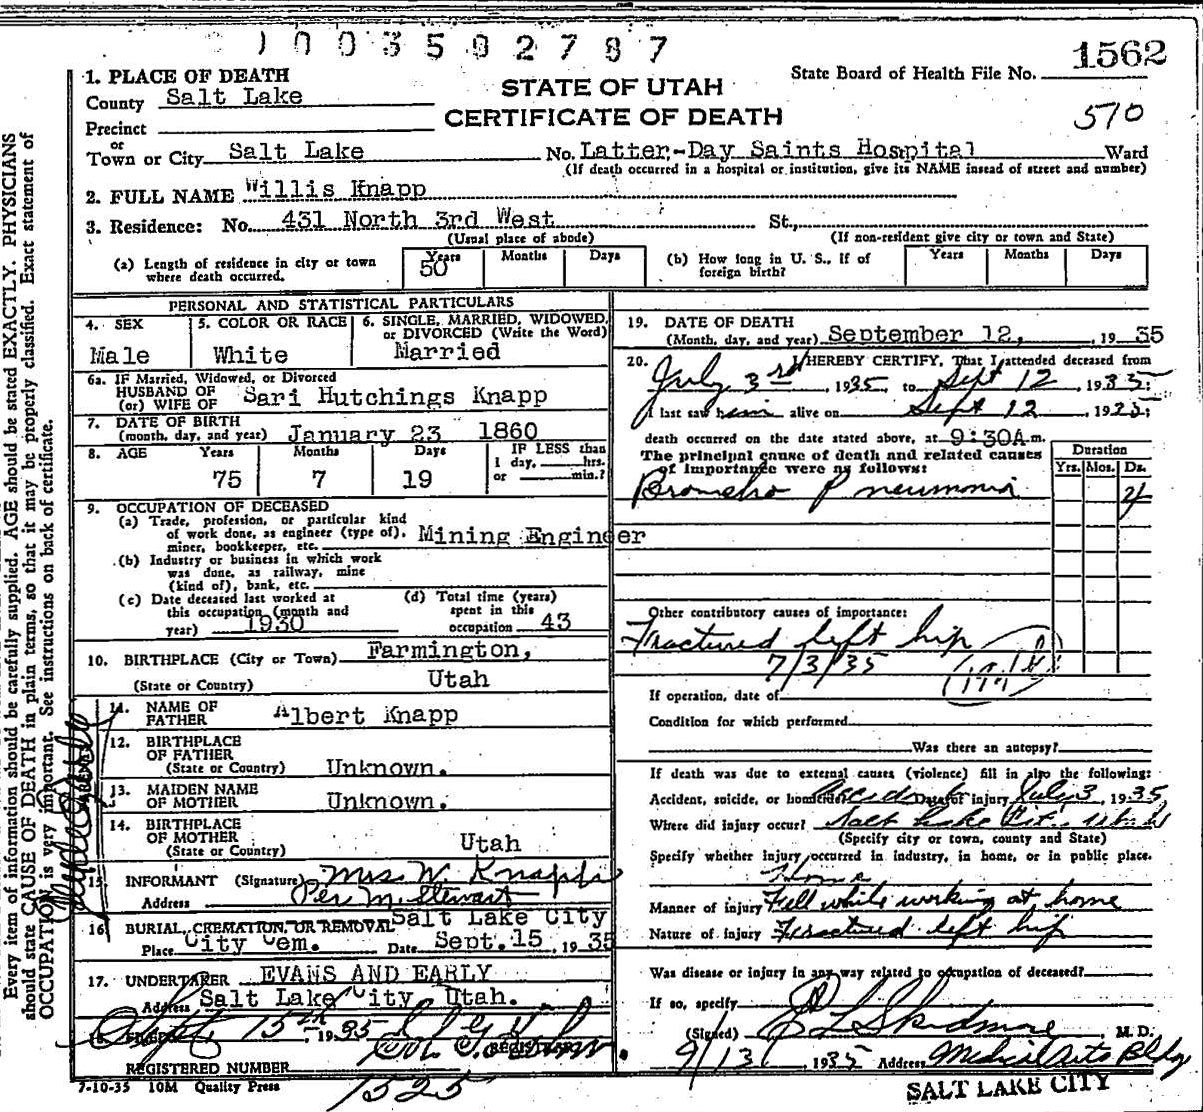 1003502787
1562
State Board of Health File No.
STATE OF UTAH
CERTIFICATE OF DEATH
570
1. PLACE OF DEATH
County Salt Lake
Precinct
or
Town or City Salt Lake No. Latter-Day Saints Hospital Ward
(If death occurred in a hospital or institution, give its NAME instead of street and number)
2. FULL NAME Willis Knapp
3. Residence: No. 431 North 3rd West St.,
(Usual place of abode) (If non-resident give city or town and State)
(a) Length of residence in city or town where death occurred. Years 50 Months Days
(b) How long in U. S., If of foreign birth? Years Months Days
PERSONAL AND STATISTICAL PARTICULARS
4. SEX Male
5. COLOR OR RACE White
6. SINGLE, MARRIED, WIDOWED, or DIVORCED (Write the Word) Married
6a. IF Married, Widowed, or Divorced
HUSBAND OF
(or) WIFE OF Sari Hutchings Knapp
7. DATE OF BIRTH
(month, day, and year) January 23 1860
8. AGE Years 75 Months 7 Days 19
IF LESS than
1 day, hrs.
or min.?
9. OCCUPATION OF DECEASED
(a) Trade, profession, or particular kind
of work done, as engineer (type of),
miner, bookkeeper, etc. Mining Engineer
(b) Industry or business in which work
was done, as railway, mine
(kind of), bank, etc.
(c) Date deceased last worked at
this occupation (month and
year) 1930
(d) Total time (years)
spent in this
occupation 43
10. BIRTHPLACE (City or Town) Farmington,
(State or Country) Utah
11. NAME OF
FATHER Albert Knapp
12. BIRTHPLACE
OF FATHER
(State or Country) Unknown.
13. MAIDEN NAME
OF MOTHER Unknown.
14. BIRTHPLACE
OF MOTHER
(State or Country) Utah
15. INFORMANT (Signature) Mrs W Knapp
Address Per M. Stewart
16. BURIAL, CREMATION, OR REMOVAL Salt Lake City
Place City Cem. Date Sept. 15, 1935
17. UNDERTAKER EVANS AND EARLY
Address Salt Lake City Utah.
18. FILED Sept 15th, 1935
REGISTRAR
REGISTERED NUMBER 1525
7-10-35 10M Quality Press
19. DATE OF DEATH
(Month, day, and year) September 12, 1935
20. I HEREBY CERTIFY, That I attended deceased from
July 3rd, 1935 to Sept 12, 1935;
I last saw him alive on Sept 12, 1935;
death occurred on the date stated above, at 9:30A m.
The principal cause of death and related causes
of importance were as follows:
Duration
Yrs. Mos. Ds.
Broncho Pneumonia
Other contributory causes of importance:
Fractured left hip
7/3/35
If operation, date of
Condition for which performed
Was there an autopsy?
If death was due to external causes (violence) fill in also the following:
Accident, suicide, or homicide? Accident Date of injury July 3, 1935
Where did injury occur? Salt Lake City Utah
(Specify city or town, county and State)
Specify whether injury occurred in industry, in home, or in public place.
Home
Manner of injury Fell while working at home
Nature of injury Fractured left hip
Was disease or injury in any way related to occupation of deceased?
If so, specify
(Signed) L Skidmore, M. D.
9/13 1935 Address Medical Arts Bldg
SALT LAKE CITY
Every item of information should be carefully supplied. AGE should be stated EXACTLY. PHYSICIANS
should state CAUSE OF DEATH in plain terms, so that it may be properly classified. Exact statement of
OCCUPATION is very important. See instructions on back of certificate.